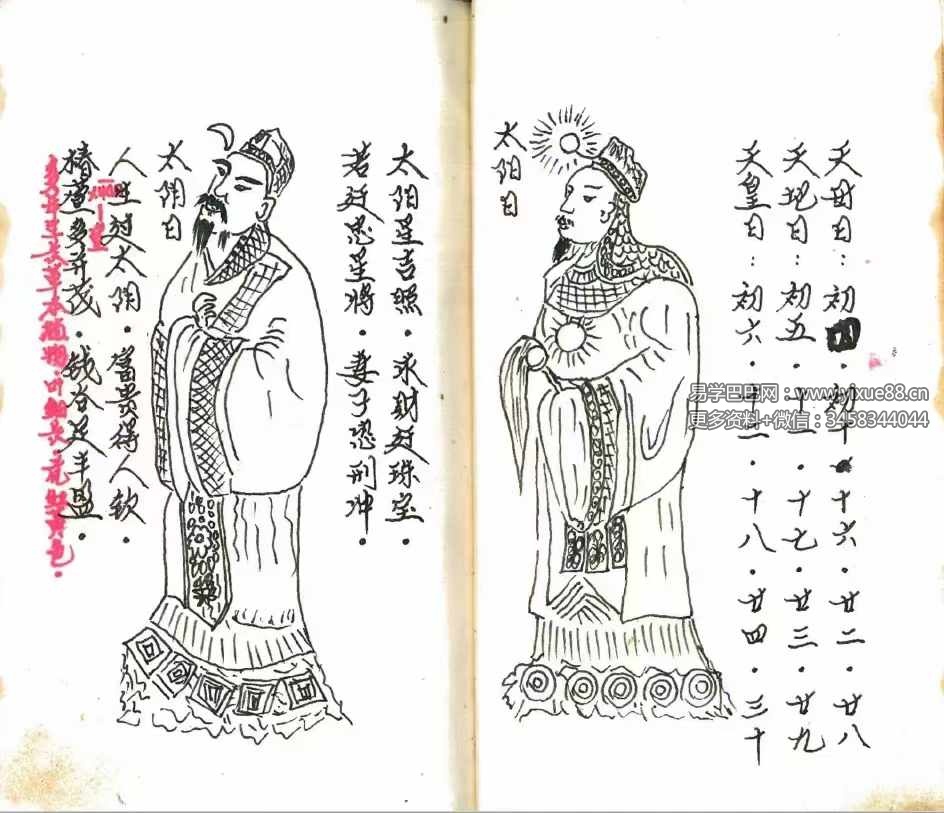 天母日：初四．初十．十六．廿二．廿八
天日：初五．十一．十七．廿三．廿九
天皇日：初六．十二．十八．廿四．三十
太阳日
太阳星吉照．求财珠宝．
若恶星将．妻子恐刑冲．
太阴日
人生太阴．富贵得人钦．
椿萱多并茂．钱谷丰盈．
多年生长草本植物叶细长．花红黄色．
易学巴巴网：www.yixue88.cn
更多资料+微信：3458344044